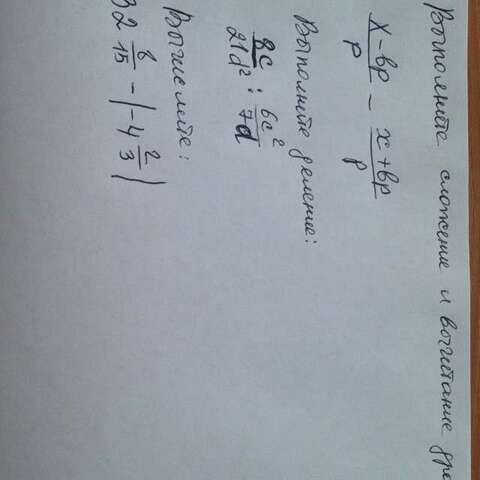 Выполните сложение и вычитание дро
x-bp/p - x+bp/p
Выполните деление:
8c/21d² : 6c²/7d
Вычислите:
32 8/15 - |-4 2/3|